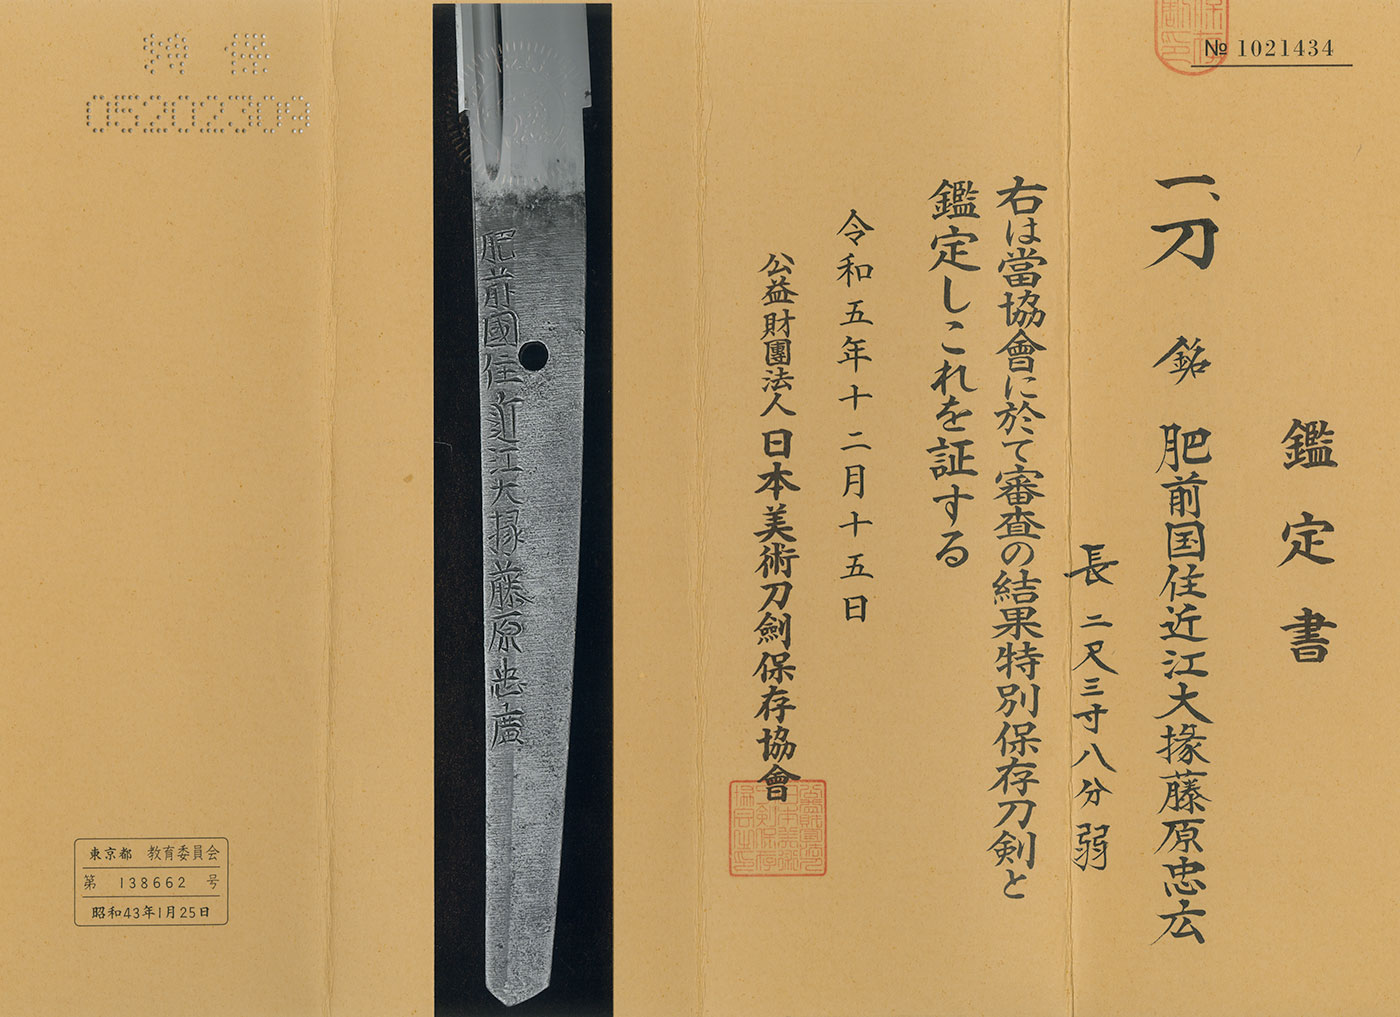 № 1021434
鑑定書
一、刀 銘 肥前国住近江大掾藤原忠広
長 二尺三寸八分弱
右は當協會に於て審査の結果特別保存刀剣と
鑑定しこれを証する
令和五年十二月十五日
公益財團法人 日本美術刀劍保存協會
肥前國住近江大掾藤原忠廣
特保
05202309
東京都 教育委員会
第 138662 号
昭和43年1月25日